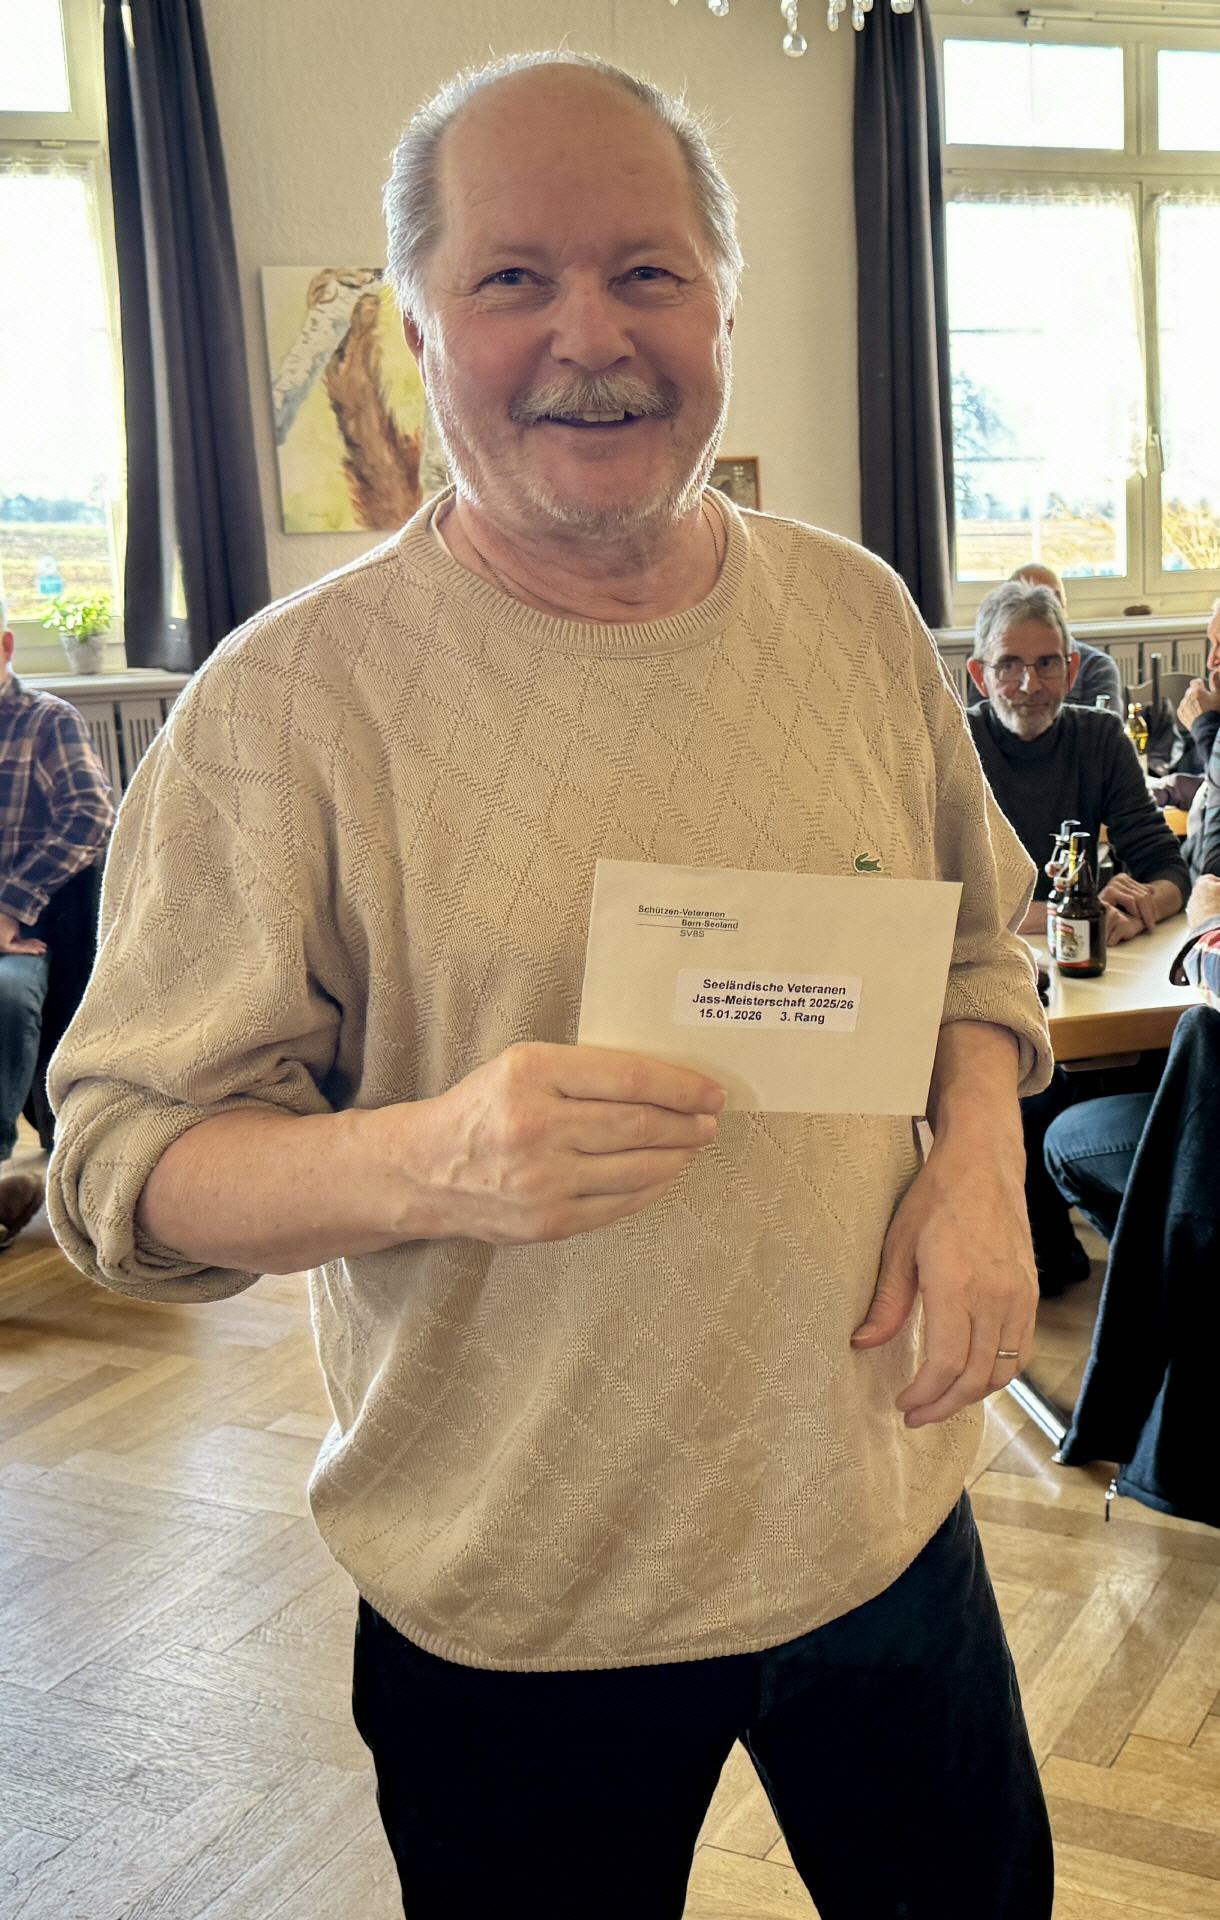 Schützen-Veteranen
Bern-Seeland
SVBS
Seeländische Veteranen
Jass-Meisterschaft 2025/26
15.01.2026 3. Rang